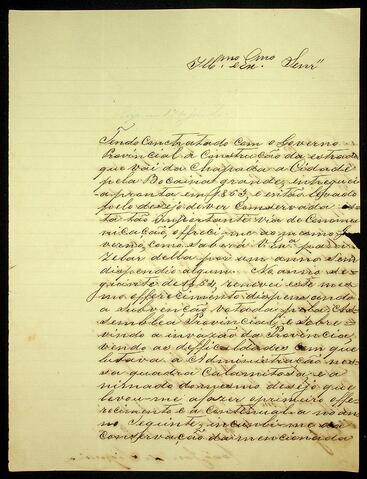 Ill.mo Ex.mo Senr.
Tendo Contractado com o Governo
Provincial a Construcção da estrada
que vai da Chapada a Cidade
pela Bocaina grande, entreguei
a prompta em 1863, e então levado
pelo desejo de ver Conservada
tão importante via de Commu-
nicação, offereci-me ao mesmo Go-
verno, como saberá V. Exª, para
Zelar della por um anno sem
dispendio algum. No anno se-
guinte de 1864, renovei este mes-
mo offerecimento dispensando
a subvenção votada pela As-
semblea Provincial; e sobre-
vindo a invasão da Provincia,
vendo as difficuldades com que
lutava a Administração nes-
sa quadra Calamitosa e a-
nimado do mesmo desejo que
levou-me a fazer o primeiro offe-
recimento e a Continual-o no an-
no Seguinte, incumbi-me da
Conservação da mencionada